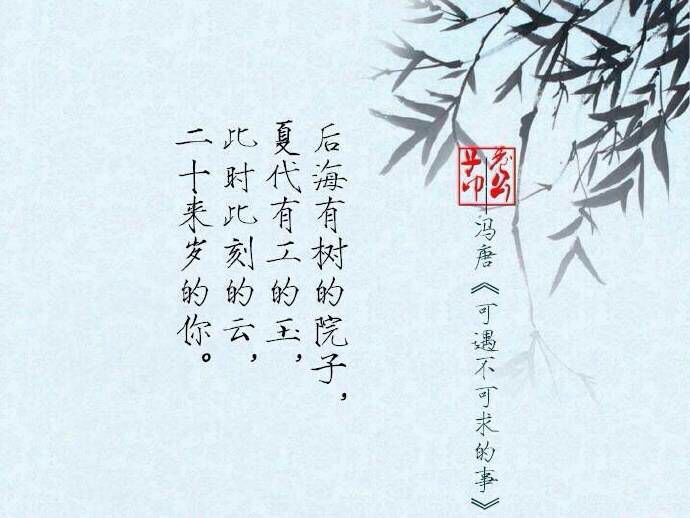 后海有树的院子，
夏代有工的玉，
此时此刻的云，
二十来岁的你。
——冯唐《可遇不可求的事》